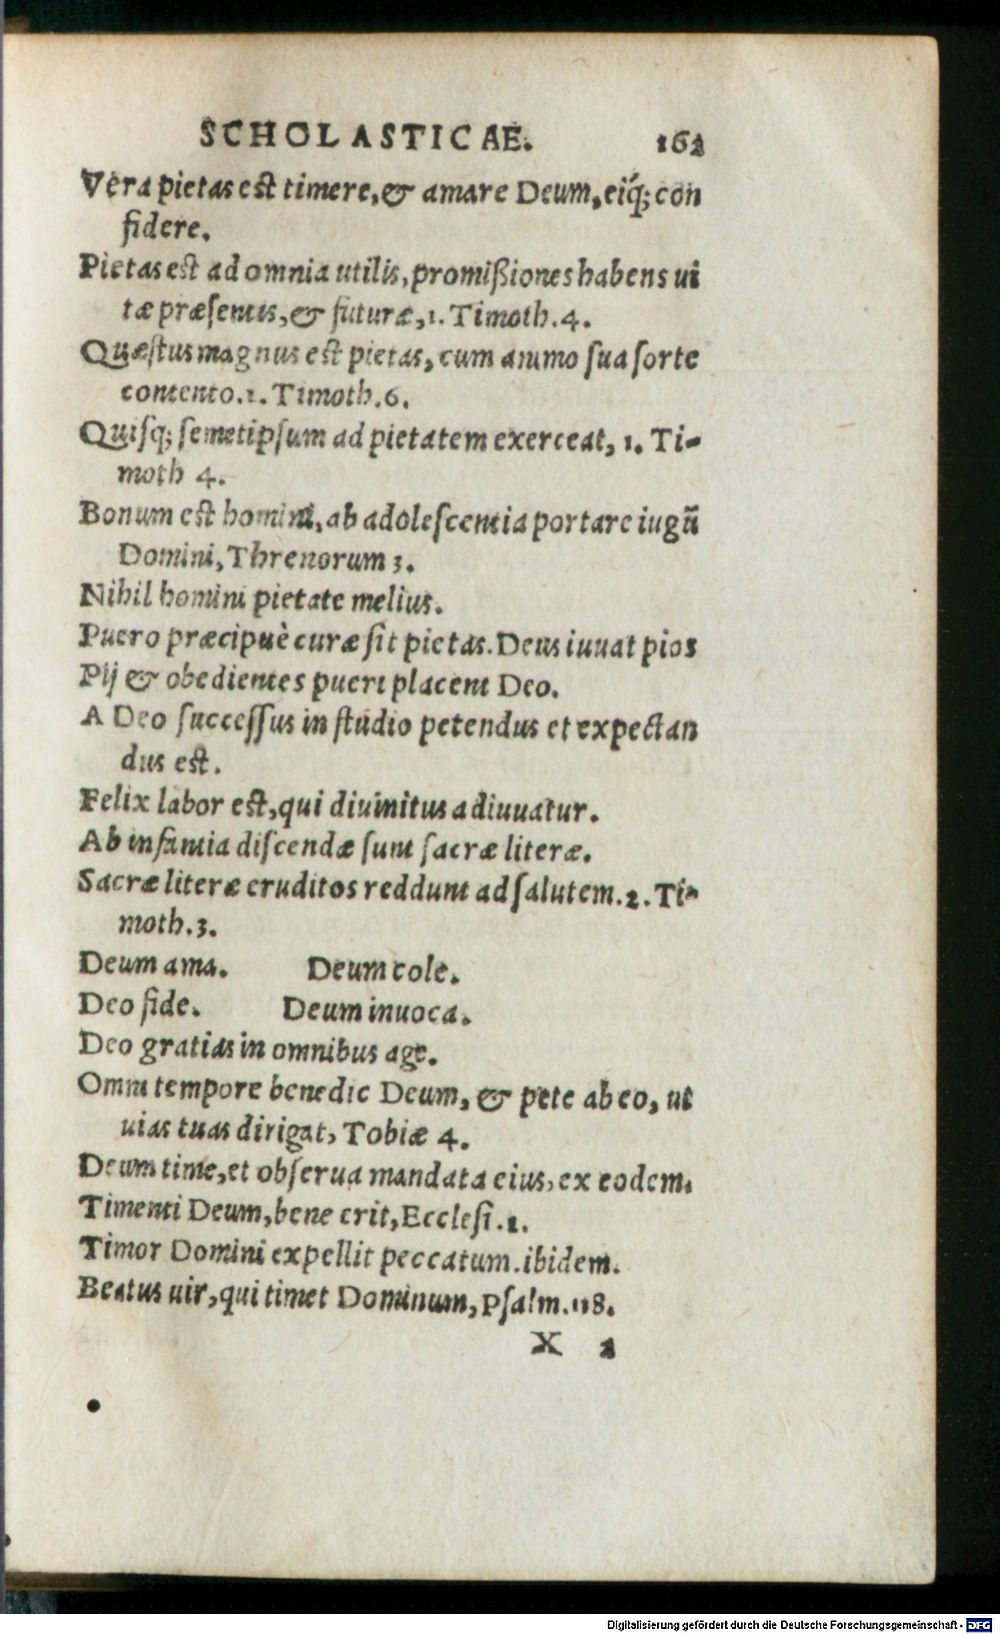 SCHOLASTICAE. 162
Vera pietas est timere, & amare Deum, eiq́; con
fidere.
Pietas est ad omnia utilis, promißiones habens ui
tæ præsentis, & futuræ, 1. Timoth. 4.
Quæstus magnus est pietas, cum animo sua sorte
contento. 1. Timoth. 6.
Quisq; semetipsum ad pietatem exerceat, 1. Ti-
moth 4.
Bonum est homini, ab adolescentia portare iugū
Domini, Threnorum 3.
Nihil homini pietate melius.
Puero præcipuè curæ sit pietas. Deus iuuat pios
Pij & obedientes pueri placent Deo.
A Deo successus in studio petendus et expectan
dus est.
Felix labor est, qui diuinitus adiuuatur.
Ab infantia discendæ sunt sacræ literæ.
Sacræ literæ eruditos reddunt ad salutem. 2. Ti-
moth. 3.
Deum ama. Deum cole.
Deo fide. Deum inuoca.
Deo gratias in omnibus age.
Omni tempore benedic Deum, & pete ab eo, ut
uias tuas dirigat, Tobiæ 4.
Deum time, et obserua mandata eius, ex eodem.
Timenti Deum, bene erit, Ecclesi. 1.
Timor Domini expellit peccatum. ibidem.
Beatus uir, qui timet Dominum, Psalm. 118.
X 2
Digitalisierung gefördert durch die Deutsche Forschungsgemeinschaft - DFG